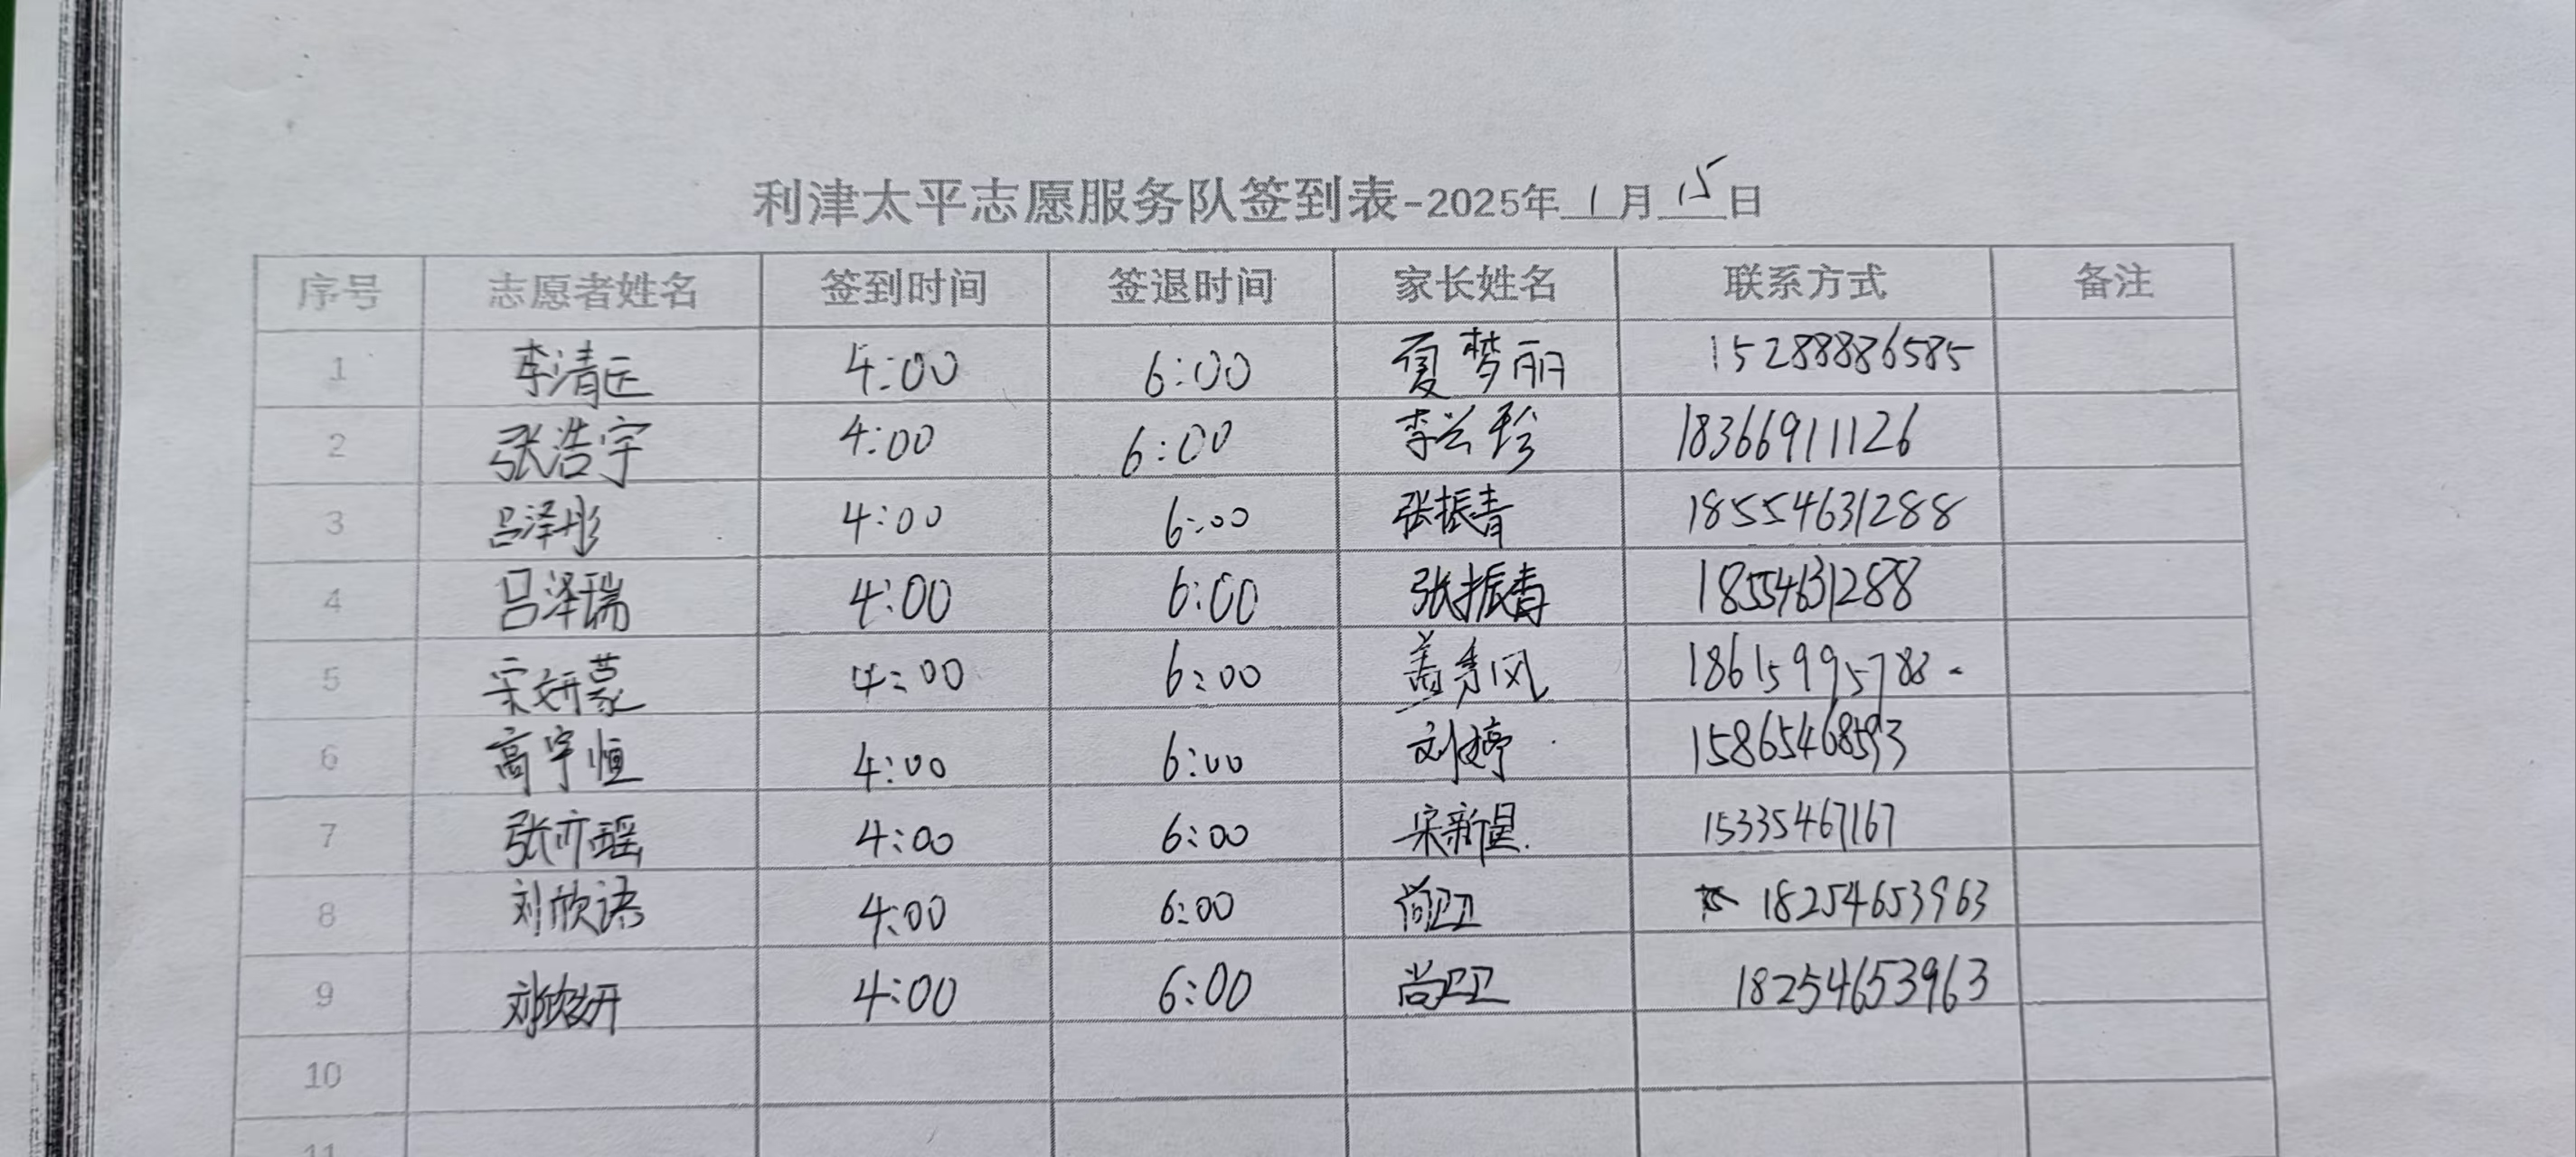 利津太平志愿服务队签到表-2025年 1 月 15 日
序号 志愿者姓名 签到时间 签退时间 家长姓名 联系方式 备注
1 李清 4:00 6:00 夏梦丽 15288886585
2 张浩宇 4:00 6:00 李兰珍 18366911126
3 吕泽彤 4:00 6:00 张振青 18554631288
4 吕泽瑞 4:00 6:00 张振青 18554631288
5 宋妍蒙 4:00 6:00 盖秀风 18615995788
6 高宇恒 4:00 6:00 刘婷 15865468593
7 张亦瑶 4:00 6:00 宋新星 15335467167
8 刘欣语 4:00 6:00 尚卫卫 18254653963
9 刘欣妍 4:00 6:00 尚卫卫 18254653963
10
11